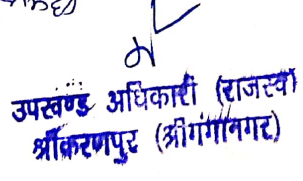 उपखण्ड अधिकारी (राजस्व)
श्रीकरणपुर (श्रीगंगानगर)